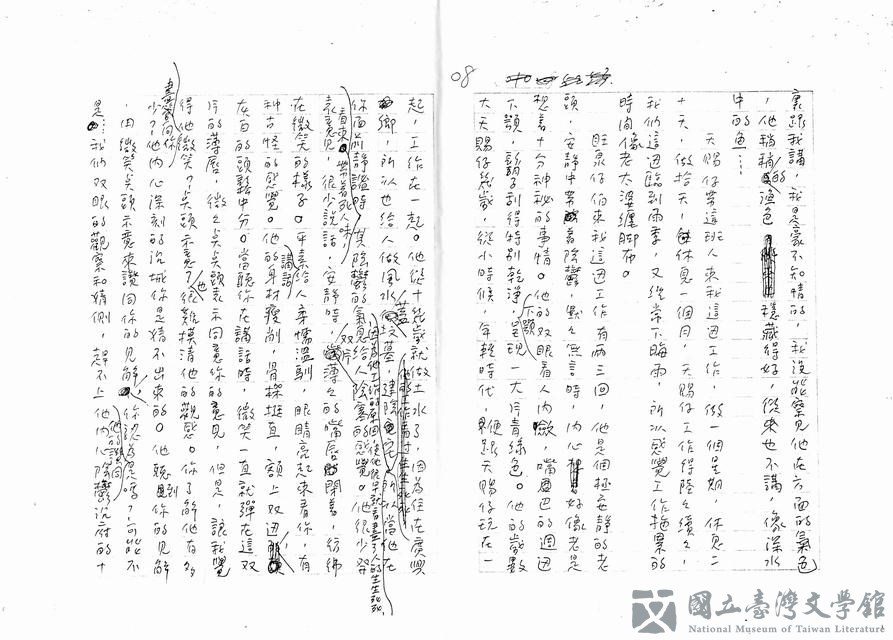 08
裏跟我講,我是毫不知情的,我沒能察見他在方面的氣色
,他稍稍的漁色 穩藏得好,從來也不講,像深水
中的魚…
天賜仔帶這班人來我這迌工作,做一個星期,休息二
十天,做拾天,休息一個月,天賜仔工作得陸々續々,
我們這迌臨到雨季,又經常下晦雨,所以感覺工作拖累的
時間像老太婆纏腳布。
旺泉仔伯來我這迌工作有兩三回,他是個極安靜的老
頭,安靜中帶著陰鬱,默々無言時,內心好像老是
想著十分神秘的事情。他的双眼看人內歛,嘴唇巴的週迌
下顎,鬍子刮得特別乾淨,呈現一大片青綠色。他的歲數
大天賜仔幾歲,從小時候,年輕時代,便跟天賜仔玩在一
起,工作在一起。他從十幾歲就做土水了,因為住在廣興
鄉,所以也給人做風水蓋墳墓,建陰宅,所以當他在
你面前靜謐時,其陰鬱的氣息給人陰寒的感覺。他很少發
表意見,很少說話,安靜時,双片薄々的嘴唇閉著,彷彿
看來帶著死人味
在微笑的樣子。平素給人柔懦溫馴,眼睛亮起來看你,有
講話
種古怪的感覺。他的身材瘦削,骨樑挺直,額上双迌
灰白的頭髮中分。當聽你在講話時,微笑一直就彈在這双
片的薄唇,微々點々頭表示同意你的意見,但是,讓我覺
得他微笑?點頭示意?很難摸清他的觀感。你了解他有多
少?他內心深刻的沉城你是猜不出來的。他聽到你的見解
,用微笑點頭示意來讚同你的見解,你認為是嗎?可能不
是…我們双眼的觀察和猜測,趕不上他內心陰鬱沉府的十
他的讚同
國立臺灣文學館
National Museum of Taiwan Literature